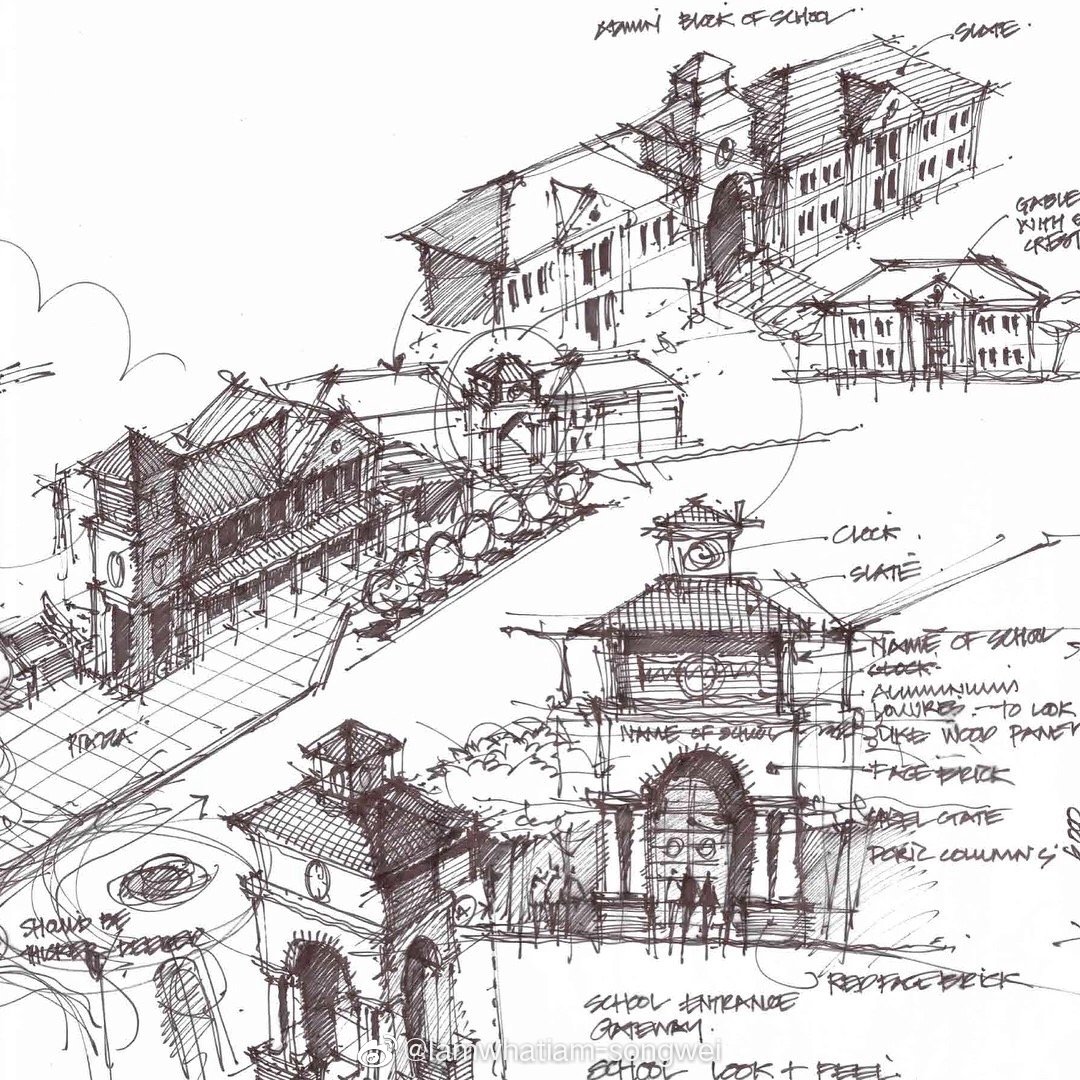 ADMIN BLOCK OF SCHOOL
SLATE
GABLE
WITH
CREST
CLOCK
SLATE
NAME OF SCHOOL
CLOCK
ALUMINIUM
LOUVRES - TO LOOK
LIKE WOOD PANEL
NAME OF SCHOOL
FACE BRICK
DORIC COLUMNS
PIAZZA
SHOULD BE
THICKER DEEPER
RED FACE BRICK
SCHOOL ENTRANCE
GATEWAY.
@Iamwhatiam-songwei
SCHOOL LOOK + FEEL